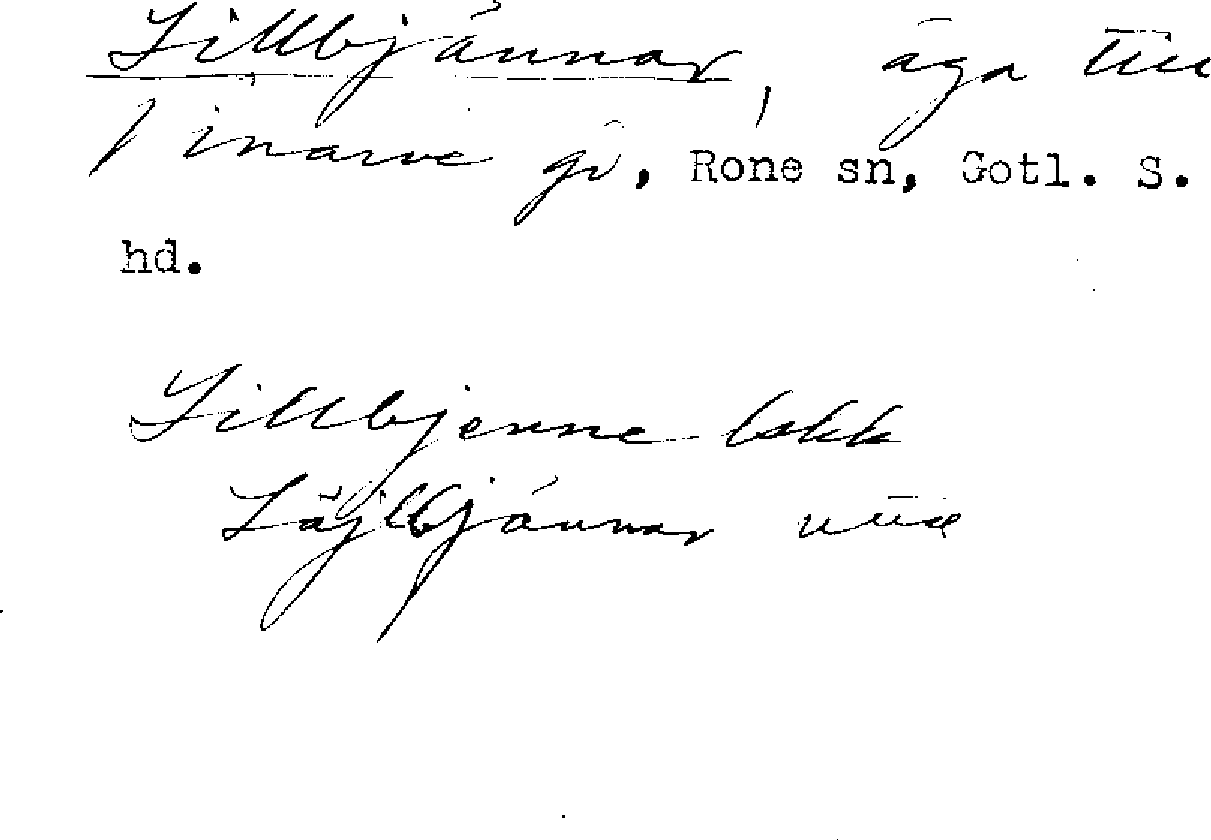 Lillbjánnar, äga till
Finarve gd, Rone sn, Gotl. S.
hd.
Lillbjenne bakk
Läjlbjánnar